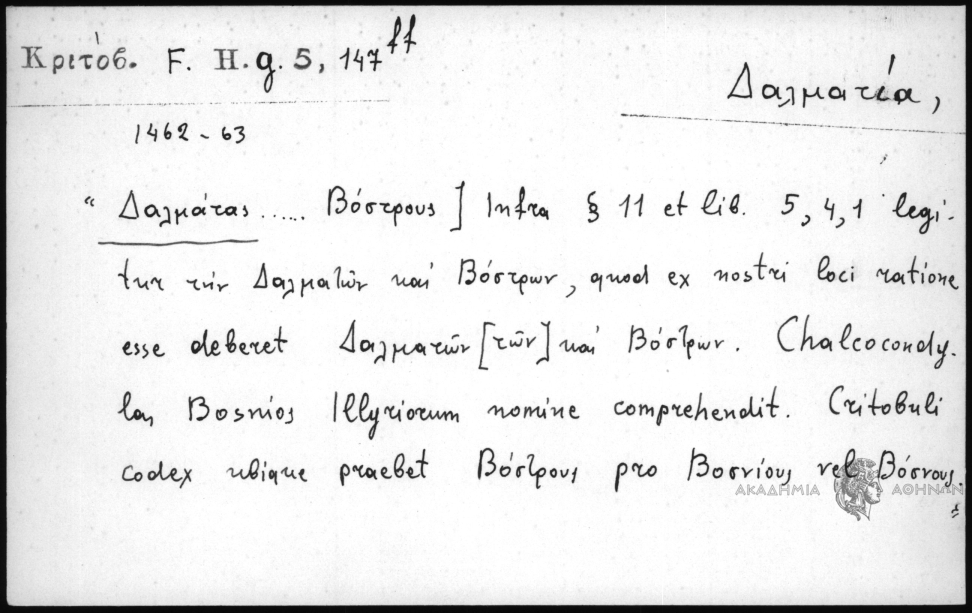 Κριτόβ. F. H. g. 5, 147 ff
Δαλματία,
1462 - 63
“ Δαλμάτας ..... Βόστρους ] Infra § 11 et lib. 5, 4, 1 legi-
tur τήν Δαλματῶν καί Βόστρων, quod ex nostri loci ratione
esse deberet Δαλματῶν [τῶν] καί Βόστρων. Chalcocondy-
las Bosnios Illyriorum nomine comprehendit. Critobuli
codex ubique praebet Βόστρους pro Βοσνίους vel Βόσνους.
ΑΚΑΔΗΜΙΑ ΑΘΗΝΩΝ